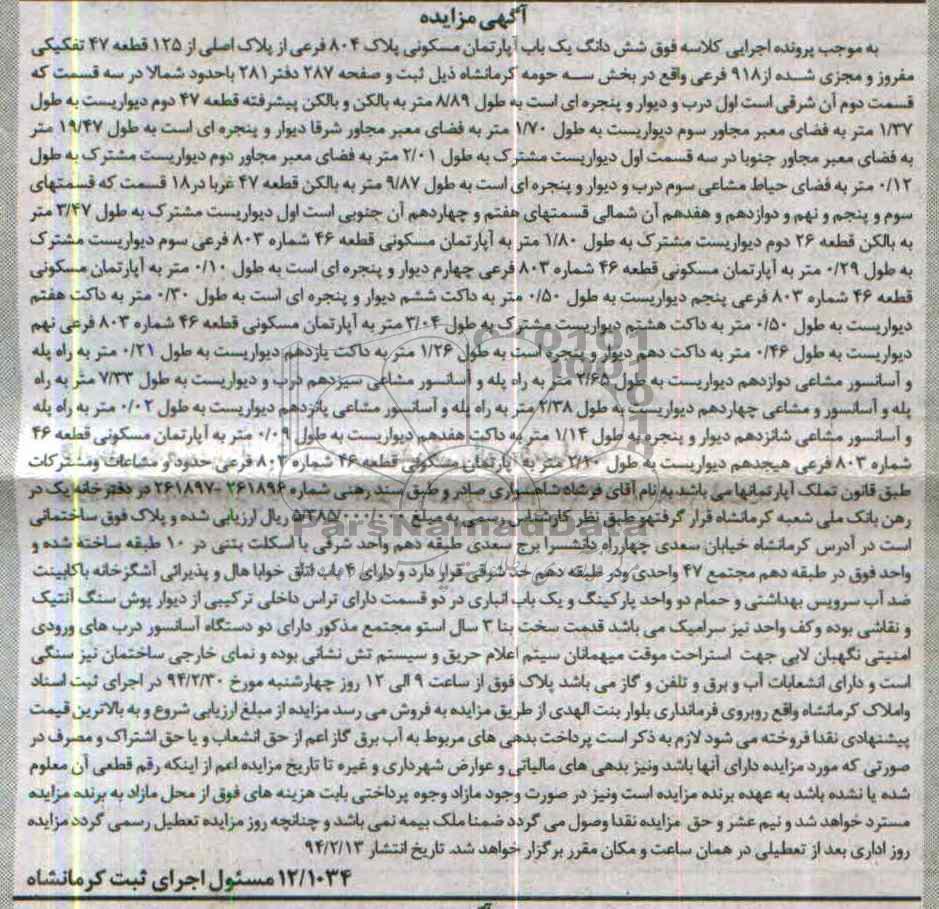 آگهی مزایده
به موجب پرونده اجرایی کلاسه فوق شش دانگ یک باب آپارتمان مسکونی پلاک ۸۰۴ فرعی از پلاک اصلی از ۱۲۵ قطعه ۴۷ تفکیکی
مفروز و مجزی شده از ۹۱۸ فرعی واقع در بخش سه حومه کرمانشاه ذیل ثبت و صفحه ۲۸۷ دفتر ۲۸۱ باحدود شمالا در سه قسمت که
قسمت دوم آن شرقی است اول درب و دیوار و پنجره ای است به طول ۸/۸۹ متر به بالکن و بالکن پیشرفته قطعه ۴۷ دوم دیواریست به طول
۱/۳۷ متر به فضای معبر مجاور سوم دیواریست به طول ۱/۷۰ متر به فضای معبر مجاور شرقا دیوار و پنجره ای است به طول ۱۹/۴۷ متر
به فضای معبر مجاور جنوبا در سه قسمت اول دیواریست مشترک به طول ۲/۰۱ متر به فضای معبر مجاور دوم دیواریست مشترک به طول
۰/۱۲ متر به فضای حیاط مشاعی سوم درب و دیوار و پنجره ای است به طول ۹/۸۷ متر به بالکن قطعه ۴۷ غربا در ۱۸ قسمت که قسمتهای
سوم و پنجم و نهم و دوازدهم و هفدهم آن شمالی قسمتهای هفتم و چهاردهم آن جنوبی است اول دیواریست مشترک به طول ۳/۴۷ متر
به بالکن قطعه ۲۶ دوم دیواریست مشترک به طول ۱/۸۰ متر به آپارتمان مسکونی قطعه ۴۶ شماره ۸۰۳ فرعی سوم دیواریست مشترک
به طول ۰/۲۹ متر به آپارتمان مسکونی قطعه ۴۶ شماره ۸۰۳ فرعی چهارم دیوار و پنجره ای است به طول ۰/۱۰ متر به آپارتمان مسکونی
قطعه ۴۶ شماره ۸۰۳ فرعی پنجم دیواریست به طول ۰/۵۰ متر به داکت ششم دیوار و پنجره ای است به طول ۰/۳۰ متر به داکت هفتم
دیواریست به طول ۰/۵۰ متر به داکت هشتم دیواریست مشترک به طول ۳/۰۴ متر به آپارتمان مسکونی قطعه ۴۶ شماره ۸۰۳ فرعی نهم
دیواریست به طول ۰/۴۶ متر به داکت دهم دیوار و پنجره است به طول ۱/۲۶ متر به داکت یازدهم دیواریست به طول ۰/۲۱ متر به راه پله
و آسانسور مشاعی دوازدهم دیواریست به طول ۲/۶۵ متر به راه پله و آسانسور مشاعی سیزدهم درب و دیواریست به طول ۷/۳۳ متر به راه
پله و آسانسور و مشاعی چهاردهم دیواریست به طول ۲/۳۸ متر به راه پله و آسانسور مشاعی پانزدهم دیواریست به طول ۰/۰۲ متر به راه پله
و آسانسور مشاعی شانزدهم دیوار و پنجره به طول ۱/۱۴ متر به داکت هفدهم دیواریست به طول ۰/۰۹ متر به آپارتمان مسکونی قطعه ۴۶
شماره ۸۰۳ فرعی هیجدهم دیواریست به طول ۲/۴۰ متر به آپارتمان مسکونی قطعه ۴۶ شماره ۸۰۳ فرعی حدود و مشاعات ومشترکات
طبق قانون تملک آپارتمانها می باشد به نام آقای فرشاد شاهسواری صادر و طبق سند رهنی شماره ۲۶۱۸۹۶ -۲۶۱۸۹۷ در دفترخانه یک در
رهن بانک ملی شعبه کرمانشاه قرار گرفتهو طبق نظر کارشناس رسمی به مبلغ ۵/۳۸۵/۰۰۰/۰۰۰ ریال ارزیابی شده و پلاک فوق ساختمانی
است در آدرس کرمانشاه خیابان سعدی چهارراه دانشسرا برج سعدی طبقه دهم واحد شرقی با اسکلت بتنی در ۱۰ طبقه ساخته شده و
واحد فوق در طبقه دهم مجتمع ۴۷ واحدی ودر طبقه دهم حد شرقی قرار دارد و دارای ۴ باب اتاق خوابا هال و پذیرائی آشگزخانه باکابینت
ضد آب سرویس بهداشتی و حمام دو واحد پارکینگ و یک باب انباری در دو قسمت دارای تراس داخلی ترکیبی از دیوار پوش سنگ آنتیک
و نقاشی بوده وکف واحد نیز سرامیک می باشد قدمت سخت بنا ۳ سال استو مجتمع مذکور دارای دو دستگاه آسانسور درب های ورودی
امنیتی نگهبان لابی جهت استراحت موقت میهمانان سیتم اعلام حریق و سیستم تش نشانی بوده و نمای خارجی ساختمان نیز سنگی
است و دارای انشعابات آب و برق و تلفن و گاز می باشد پلاک فوق از ساعت ۹ الی ۱۲ روز چهارشنبه مورخ ۹۴/۲/۳۰ در اجرای ثبت اسناد
واملاک کرمانشاه واقع روبروی فرمانداری بلوار بنت الهدی از طریق مزایده به فروش می رسد مزایده از مبلغ ارزیابی شروع و به بالاترین قیمت
پیشنهادی نقدا فروخته می شود لازم به ذکر است پرداخت بدهی های مربوط به آب برق گاز اعم از حق انشعاب و یا حق اشتراک و مصرف در
صورتی که مورد مزایده دارای آنها باشد ونیز بدهی های مالیاتی و عوارض شهرداری و غیره تا تاریخ مزایده اعم از اینکه رقم قطعی آن معلوم
شده یا نشده باشد به عهده برنده مزایده است ونیز در صورت وجود مازاد وجوه پرداختی بابت هزینه های فوق از محل مازاد به برنده مزایده
مسترد خواهد شد و نیم عشر و حق مزایده نقدا وصول می گردد ضمنا ملک بیمه نمی باشد و چنانچه روز مزایده تعطیل رسمی گردد مزایده
روز اداری بعد از تعطیلی در همان ساعت و مکان مقرر برگزار خواهد شد. تاریخ انتشار ۹۴/۲/۱۳
۱۲/۱۰۳۴ مسئول اجرای ثبت کرمانشاه
ParsNamadData